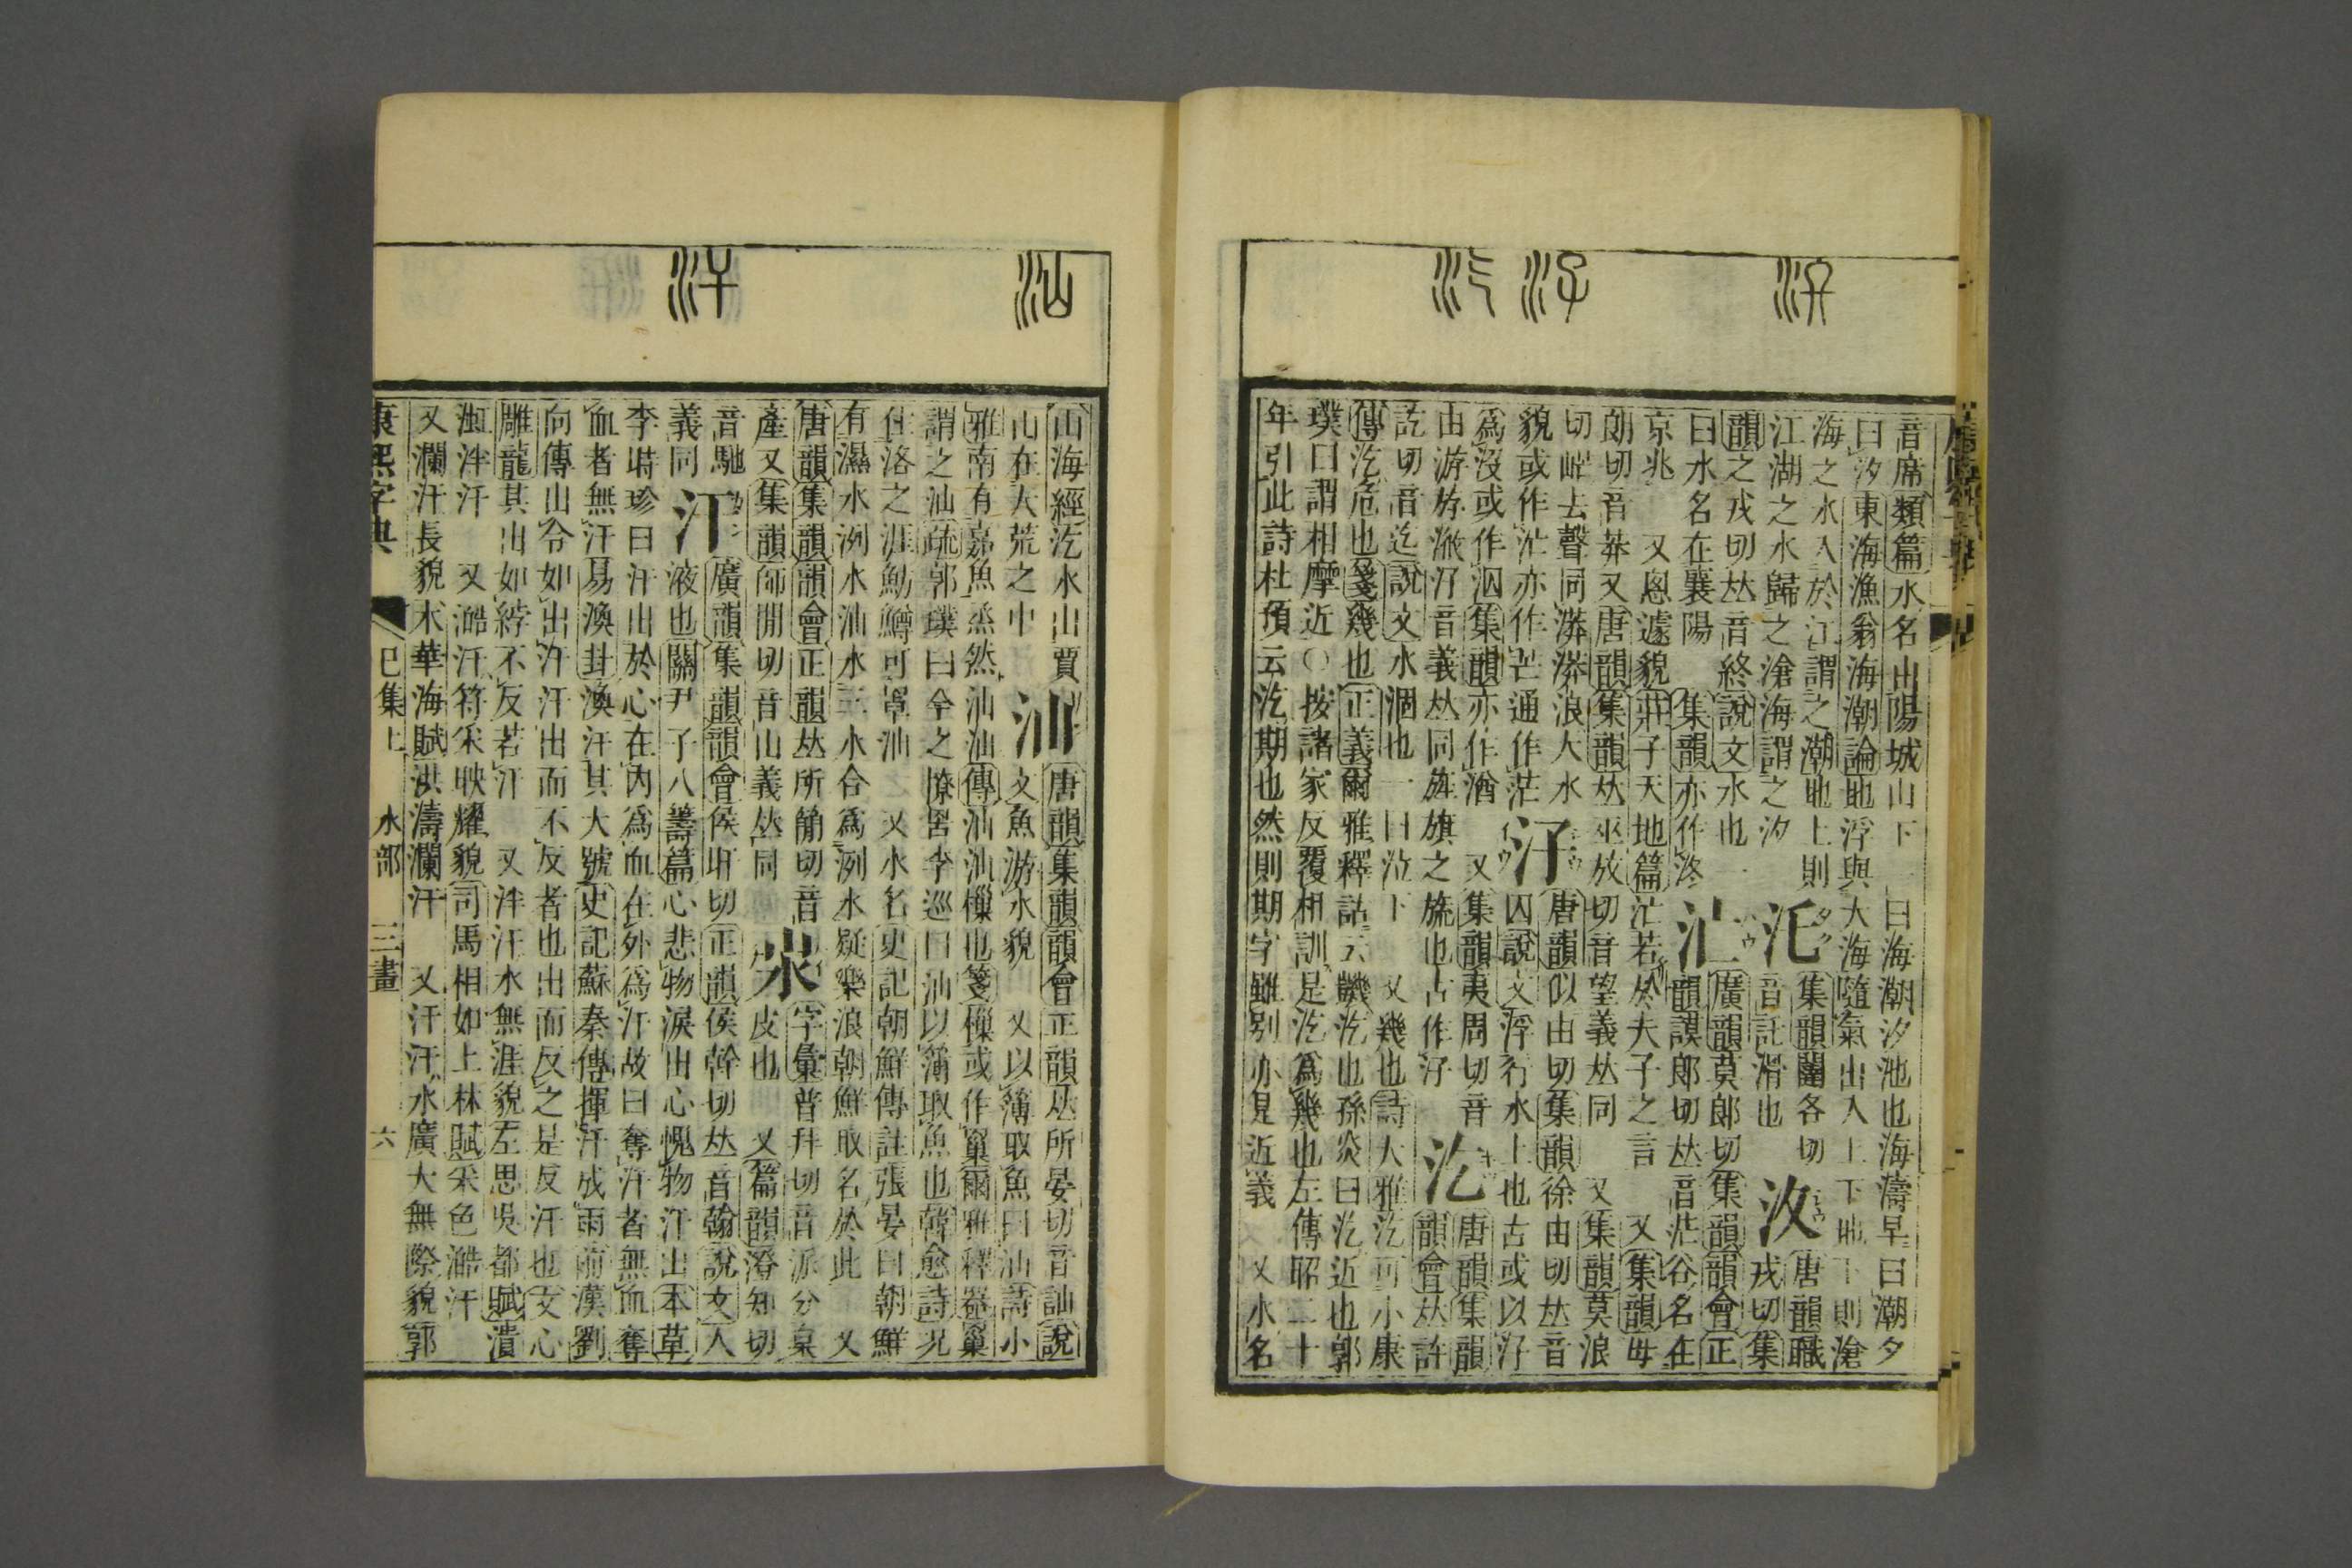 音席類篇水名出陽城山下 一曰海潮汐池也海濤早曰潮夕
曰汐東海漁翁海潮論地浮與大海隨氣出入上下地下則滄
海之水入於江謂之潮地上則
江湖之水歸之滄海謂之汐
汑
集韻闥各切
音託滑也
汷
唐韻職
戎切集
韻之戎切𠀤音終說文水也一
曰水名在襄陽 集韻亦作泈
汒
廣韻莫郎切集韻韻會正
韻謨郎切𠀤音茫谷名在
京兆 又悤遽貌莊子天地篇汒若於夫子之言 又集韻毋
朗切音莽又唐韻集韻𠀤巫放切音望義𠀤同 又集韻莫浪
切去聲同漭漭浪大水
貌或作汒亦作芒通作茫
汓
唐韻似由切集韻徐由切𠀤音
囚說文浮行水上也古或以汓
爲沒或作泅集韻亦作渞 又集韻夷周切音
由游㳺滺汓音義𠀤同旌旗之旒也古作汓
汔
唐韻集韻
韻會𠀤許
訖切音迄說文水涸也一曰泣下 又幾也詩大雅汔可小康
傳汔危也箋幾也正義爾雅釋詁云譏汔也孫炎曰汔近也郭
璞曰謂相摩近○按諸家反覆相訓是汔爲幾也左傳昭二十
年引此詩杜預云汔期也然則期字雖別亦是近義 又水名
山海經汔水出賈
山在大荒之中
汕
唐韻集韻韻會正韻𠀤所晏切音訕說
文魚游水貌 又以簿取魚曰汕詩小
雅南有嘉魚烝然汕汕傳汕汕樔也箋樔或作窼爾雅釋器窼
謂之汕疏郭璞曰今之撩罟李巡曰汕以簿取魚也韓愈詩況
住洛之涯魴鱒可罩汕 又水名史記朝鮮傳註張晏曰朝鮮
有濕水洌水汕水三水合爲洌水疑樂浪朝鮮取名於此 又
唐韻集韻韻會正韻𠀤所簡切音
產又集韻師閒切音山義𠀤同
汖
字彙普拜切音派分枲
皮也 又篇韻澄知切
音馳
義同
汗
廣韻集韻韻會侯旰切正韻侯幹切𠀤音翰說文人
液也關尹子八籌篇心悲物淚出心愧物汗出本草
李時珍曰汗出於心在內爲血在外爲汗故曰奪汗者無血奪
血者無汗易渙卦渙汗其大號史記蘇秦傳揮汗成雨前漢劉
向傳出令如出汗汗出而不反者也出而反之是反汗也文心
雕龍其出如綍不反若汗 又泮汗水無涯貌左思吳都賦潰
渱泮汗 又澔汗符采映耀貌司馬相如上林賦采色澔汗
又瀾汗長貌木華海賦洪濤瀾汗 又汗汗水廣大無際貌郭
康熙字典 巳集上 水部 三畫 六